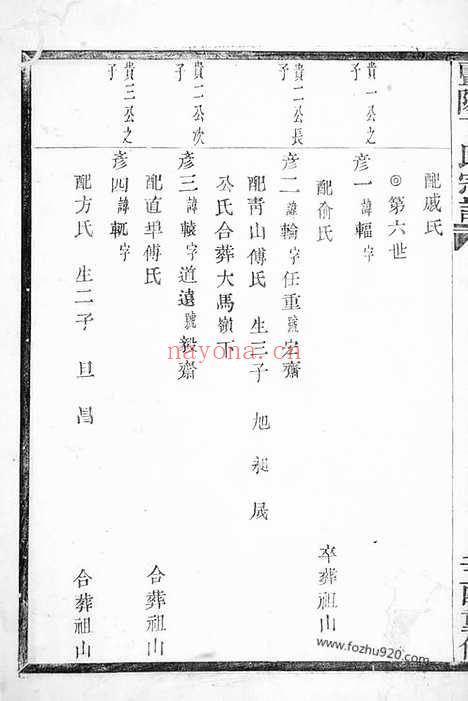 暨陽丁氏宗譜
配戚氏
◎第六世
貴一公之子 彥一諱輻字
配俞氏 卒葬祖山
貴二公長子 彥二諱輪字任重號 齋
配靑山傅氏 生三子 旭 昶 晟
公氏合葬大馬嶺下
貴二公次子 彥三諱轅字道遠號毅齋
配直埠傅氏 合葬祖山
貴三公之子 彥四諱軏字
配方氏 生二子 旦 昌 合葬祖山
nayona.cn
www.fozhu920.com